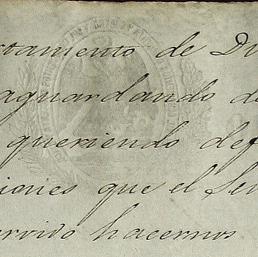 tamento de D
aguardando d
queriendo def
iones que el Se
ervido hacernos